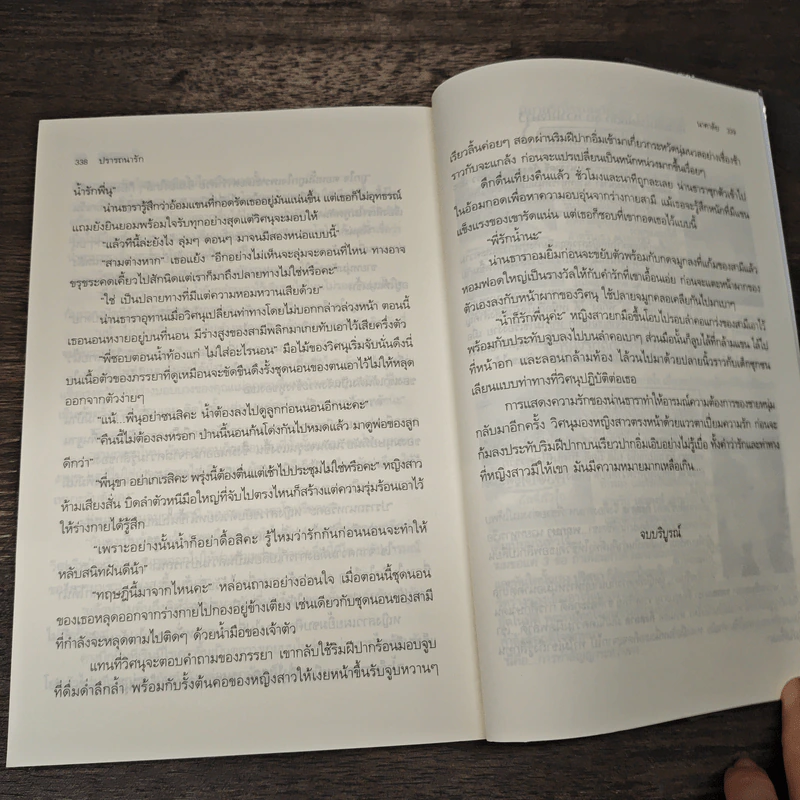 338 ปรารถนารัก
น้ำรักพี่นุ"
น่านธารารู้สึกว่าอ้อมแขนที่กอดรัดเธออยู่มันแน่นขึ้น แต่เธอก็ไม่อุทธรณ์
แถมยังยินยอมพร้อมใจรับทุกอย่างสุดแต่วิศนุจะมอบให้
"แล้วทีนี้ล่ะยังไง ลุ่มๆ ดอนๆ มาจนมีสองหน่อแบบนี้-"
"สามต่างหาก" เธอแย้ง "อีกอย่างไม่เห็นจะลุ่มจะดอนที่ไหน ทางอาจ
ขรุขระคดเคี้ยวไปสักนิดแต่เราก็มาถึงปลายทางไม่ใช่หรือคะ"
"ใช่ เป็นปลายทางที่มีแต่ความหอมหวานเสียด้วย"
น่านธาราอุทานเมื่อวิศนุเปลี่ยนท่าทางโดยไม่บอกกล่าวล่วงหน้า ตอนนี้
เธอนอนหงายอยู่บนที่นอน มีร่างสูงของสามีพลิกมาเกยทับเอาไว้เสียครึ่งตัว
"พี่ชอบตอนน้ำท้องแก่ ไม่ใส่อะไรนอน" มือไม้ของวิศนุเริ่มจับนั่นดึงนี่
บนเนื้อตัวของภรรยาที่ดูเหมือนจะขัดขืนดึงรั้งชุดนอนของตนเอาไว้ไม่ให้หลุด
ออกจากตัวง่ายๆ
"แน้...พี่นุอย่าซนสิคะ น้ำต้องลงไปดูลูกก่อนนอนอีกนะคะ"
"คืนนี้ไม่ต้องลงหรอก ป่านนี้นอนก้นโด่งกันไปหมดแล้ว มาดูพ่อของลูก
ดีกว่า"
"พี่นุขา อย่าเกเรสิคะ พรุ่งนี้ต้องตื่นแต่เช้าไปประชุมไม่ใช่หรือคะ" หญิงสาว
ห้ามเสียงสั่น บิดลำตัวหนีมือใหญ่ที่จับไปตรงไหนก็สร้างแต่ความรุ่มร้อนเอาไว้
ให้ร่างกายได้รู้สึก
"เพราะอย่างนั้นน้ำก็อย่าดื้อสิคะ รู้ไหมว่ารักกันก่อนนอนจะทำให้
หลับสนิทฝันดีน้า"
"ทฤษฎีนี้มาจากไหนคะ" หล่อนถามอย่างอ่อนใจ เมื่อตอนนี้ชุดนอน
ของเธอหลุดออกจากร่างกายไปกองอยู่ข้างเตียง เช่นเดียวกับชุดนอนของสามี
ที่กำลังจะหลุดตามไปติดๆ ด้วยน้ำมือของเจ้าตัว
แทนที่วิศนุจะตอบคำถามของภรรยา เขากลับใช้ริมฝีปากร้อนมอบจูบ
ที่ดื่มด่ำลึกล้ำ พร้อมกับรั้งต้นคอของหญิงสาวให้เงยหน้าขึ้นรับจูบหวานๆ
นาคาลัย 339
เรียวลิ้นค่อยๆ สอดผ่านริมฝีปากอิ่มเข้ามาเกี่ยวกระหวัดนุ่มนวลอย่างเชื่องช้า
ราวกับจะแกล้ง ก่อนจะแปรเปลี่ยนเป็นหนักหน่วงมากขึ้นเรื่อยๆ
ดึกดื่นเที่ยงคืนแล้ว ชั่วโมงและนาทีถูกละเลย น่านธาราซุกตัวเข้าไป
ในอ้อมกอดเพื่อหาความอบอุ่นจากร่างกายสามี แม้เธอจะรู้สึกหนักที่มีแขน
แข็งแรงของเขารัดแน่น แต่เธอก็ชอบที่เขากอดเธอไว้แบบนี้
"พี่รักน้ำนะ"
น่านธาราอมยิ้มก่อนจะขยับตัวพร้อมกับกดจมูกลงที่แก้มของสามีแล้ว
หอมฟอดใหญ่เป็นรางวัลให้กับคำรักที่เขาเอื้อนเอ่ย ก่อนจะแตะหน้าผากของ
ตัวเองลงกับหน้าผากของวิศนุ ใช้ปลายจมูกคลอเคลียกันไปมาเบาๆ
"น้ำก็รักพี่นุค่ะ" หญิงสาวยกมือขึ้นโอบไปรอบลำคอแกร่งของสามีเอาไว้
พร้อมกับประทับจูบลงไปบนลำคอเบาๆ ส่วนมือนั้นก็ลูบไล้ที่กล้ามแขน ไต่ไป
ที่หน้าอก และลอนกล้ามท้อง ไล้วนไปมาด้วยปลายนิ้วราวกับเด็กซุกซน
เลียนแบบท่าทางที่วิศนุปฏิบัติต่อเธอ
การแสดงความรักของน่านธาราทำให้อารมณ์ความต้องการของชายหนุ่ม
กลับมาอีกครั้ง วิศนุมองหญิงสาวตรงหน้าด้วยแววตาเปี่ยมความรัก ก่อนจะ
ก้มลงประทับริมฝีปากบนเรียวปากอิ่มเอิบอย่างไม่รู้เบื่อ ทั้งคำว่ารักและท่าทาง
ที่หญิงสาวมีให้เขา มันมีความหมายมากเหลือเกิน...
จบบริบูรณ์